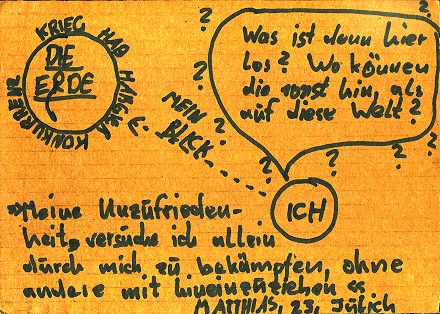 KRIEG HAß HUNGER
KONKURRENZ
DIE
ERDE
MEIN
BLICK
Was ist denn hier
los? Wo können
die sonst hin, als
auf diese Welt?
? ? ? ? ? ? ? ? ? ?
ICH
»Meine Unzufrieden-
heit, versuche ich allein
durch mich zu bekämpfen, ohne
andere mit hineinzuziehen«
MATTHIAS, 23, Jülich